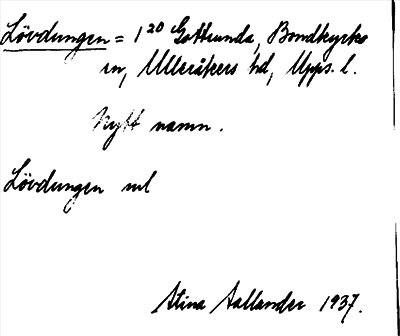 Lövdungen = 1²⁰ Gottsunda, Bondkyrko
sn, Ulleråkers hd, Upps. l.
Nytt namn.
Lövdungen ml
Stina Aallander 1937.